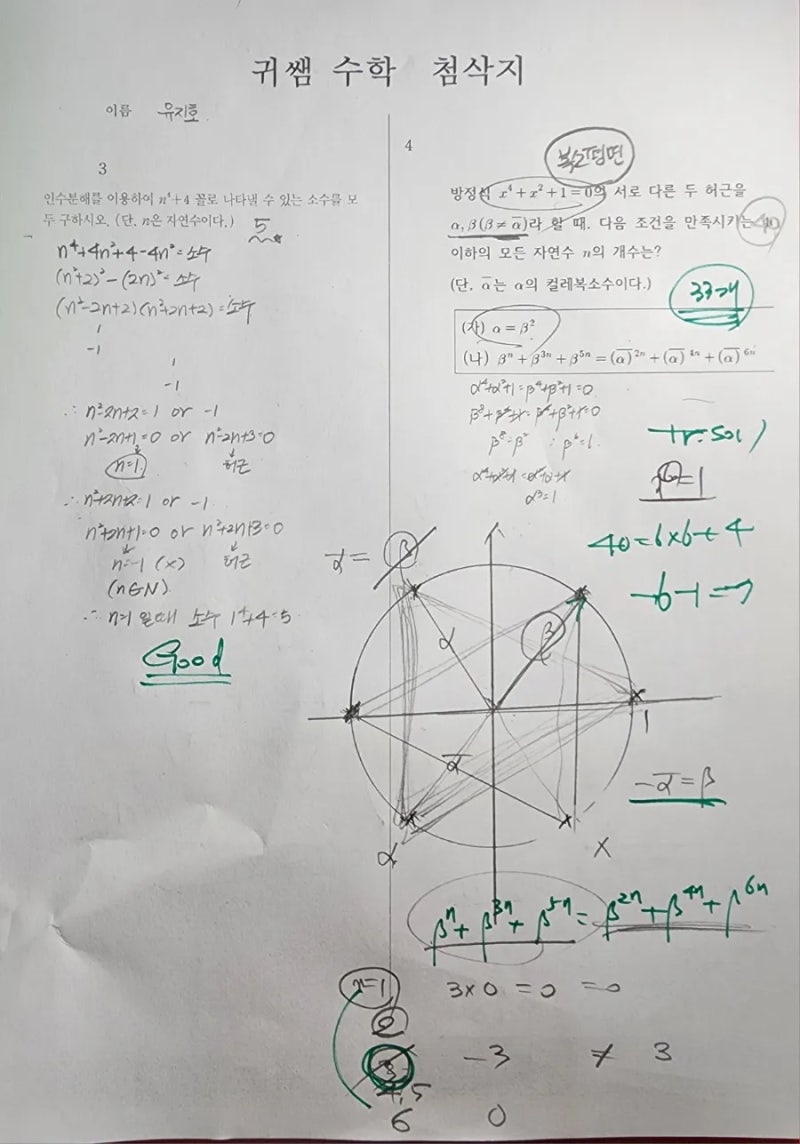 귀쌤 수학 첨삭지
이름 유지호
3
인수분해를 이용하여 n⁴+4 꼴로 나타낼 수 있는 소수를 모
두 구하시오. (단, n은 자연수이다.) 5
n⁴+4n²+4-4n²=소수
(n²+2)²-(2n)²=소수
(n²-2n+2)(n²+2n+2)=소수
1
-1
1
-1
∴ n²-2n+2=1 or -1
n²-2n+1=0 or n²-2n+3=0
n=1 허근
∴ n²+2n+2=1 or -1
n²+2n+1=0 or n²+2n+3=0
n=-1 (x) 허근
(n∈N)
∴ n=1 일때 소수 1⁴+4=5
Good
4
복소평면
방정식 x⁴+x²+1=0의 서로 다른 두 허근을
α, β(β≠α̅)라 할 때, 다음 조건을 만족시키는 40
이하의 모든 자연수 n의 개수는?
(단, α̅는 α의 켤레복소수이다.)
33개
(가) α=β²
(나) βⁿ+β³ⁿ+β⁵ⁿ=(α̅)²ⁿ+(α̅)⁴ⁿ+(α̅)⁶ⁿ
α⁴+α²+1=β⁴+β²+1=0
β⁸+β⁴+1=β⁴+β²+1=0
β⁸=β² ∴ β⁶=1
α³=1
tr. sol)
x⁶=1
40=6×6+4
-6-1=>
α̅= β
α
β
α̅
1
-α̅=β
α
x
βⁿ+β³ⁿ+β⁵ⁿ=β²ⁿ+β⁴ⁿ+β⁶ⁿ
n=1 3×0=0 =0
2
3 -3 ≠ 3
4,5
6 0